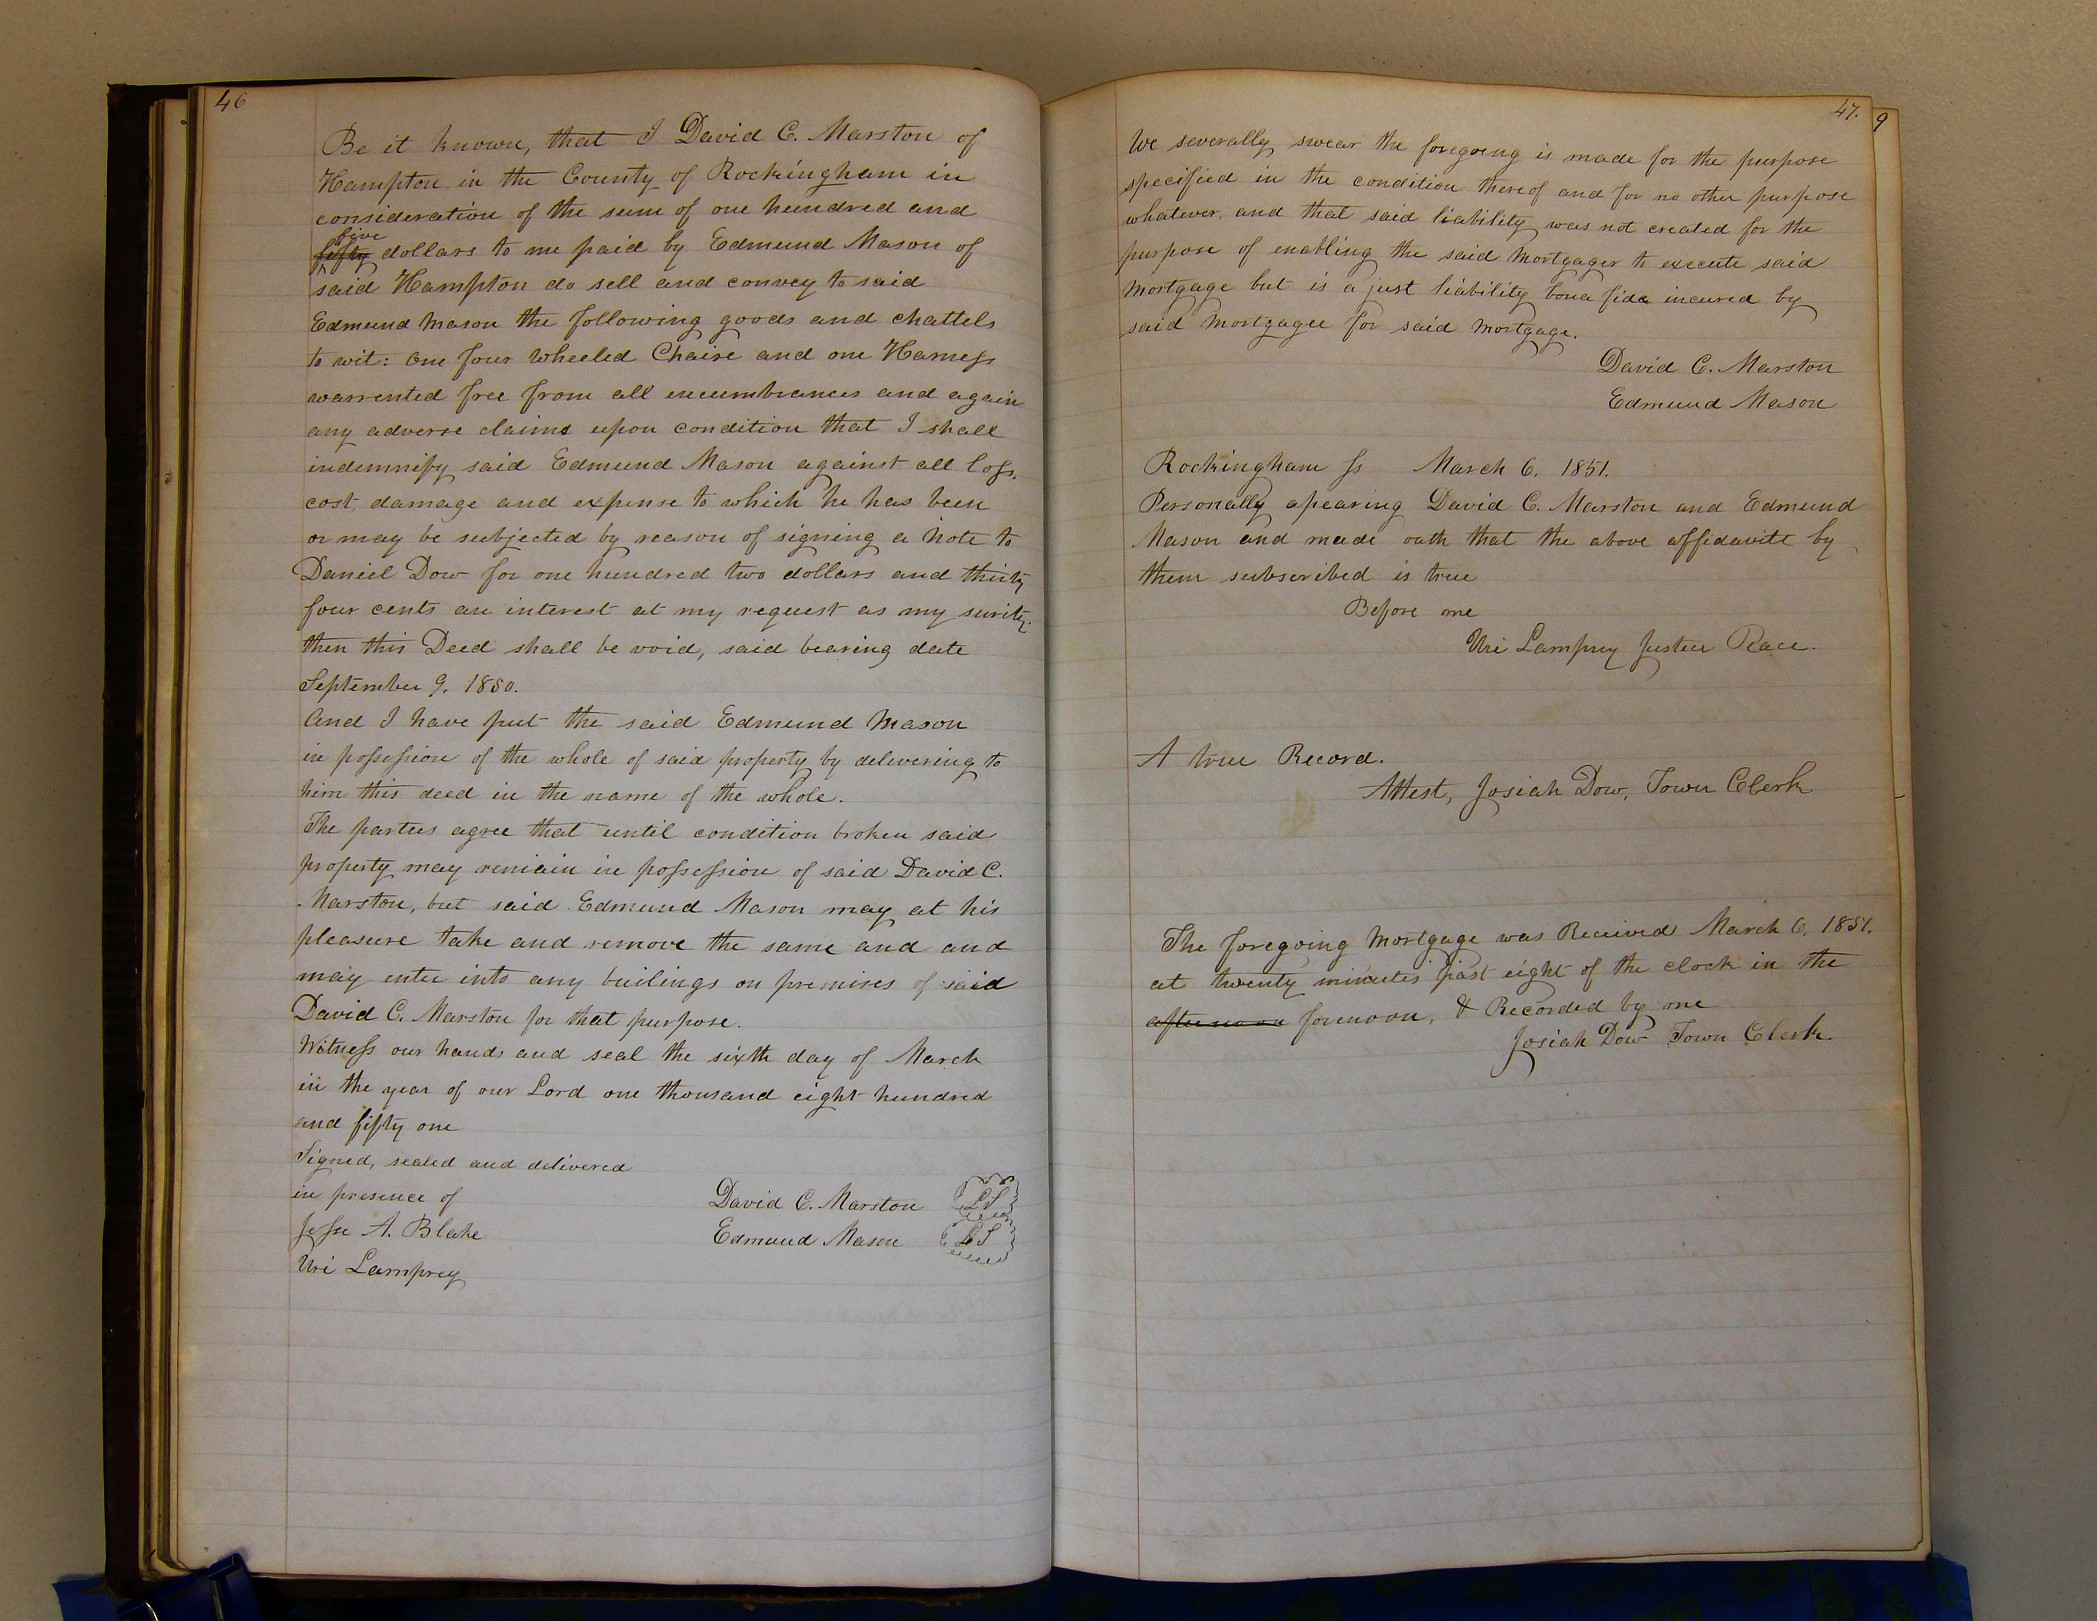 46
Be it known, that I David C. Marston of
Hampton in the County of Rockingham in
consideration of the sum of one hundred and
five
fifty dollars to me paid by Edmund Mason of
said Hampton do sell and convey to said
Edmund Mason the following goods and chattels
to wit: One four wheeled Chaise and one Harness
warrented free from all encumbrances and again
any adverse claims upon condition that I shall
indemnify said Edmund Mason against all loss.
cost, damage and expense to which he has been
or may be subjected by reason of signing a Note to
Daniel Dow for one hundred two dollars and thirty
four cents an interest at my request as my surity.
then this Deed shall be void, said bearing date
September 9. 1850.
And I have put the said Edmund Mason
in possession of the whole of said property by delivering to
him this deed in the name of the whole.
The parties agree that until condition broken said
property may remain in possession of said David C.
Marston, but said Edmund Mason may at his
pleasure take and remove the same and and
may enter into any builings on premises of said
David C. Marston for that purpose.
Witness our hands and seal the sixth day of March
in the year of our Lord one thousand eight hundred
and fifty one
Signed, sealed and delivered
in presence of
David C. Marston LS
Jesse A. Blake
Edmund Mason LS
Uri Lamprey
47.
9
We severally swear the foregoing is made for the purpose
specified in the condition thereof and for no other purpose
whatever, and that said liability was not created for the
purpose of enabling the said Mortgager to execute said
Mortgage but is a just liability bona fide incured by
said Mortgagee for said Mortgage.
David C. Marston
Edmund Mason
Rockingham Ss March 6. 1851.
Personally apearing David C. Marston and Edmund
Mason and made oath that the above affedavitt by
them subscribed is true
Before me
Uri Lamprey Justice Peace.
A true Record.
Attest, Josiah Dow, Town Clerk
The foregoing Mortgage was Received March 6, 1851.
at twenty minutes past eight of the clock in the
afternoon forenoon, & Recorded by me
Josiah Dow Town Clerk